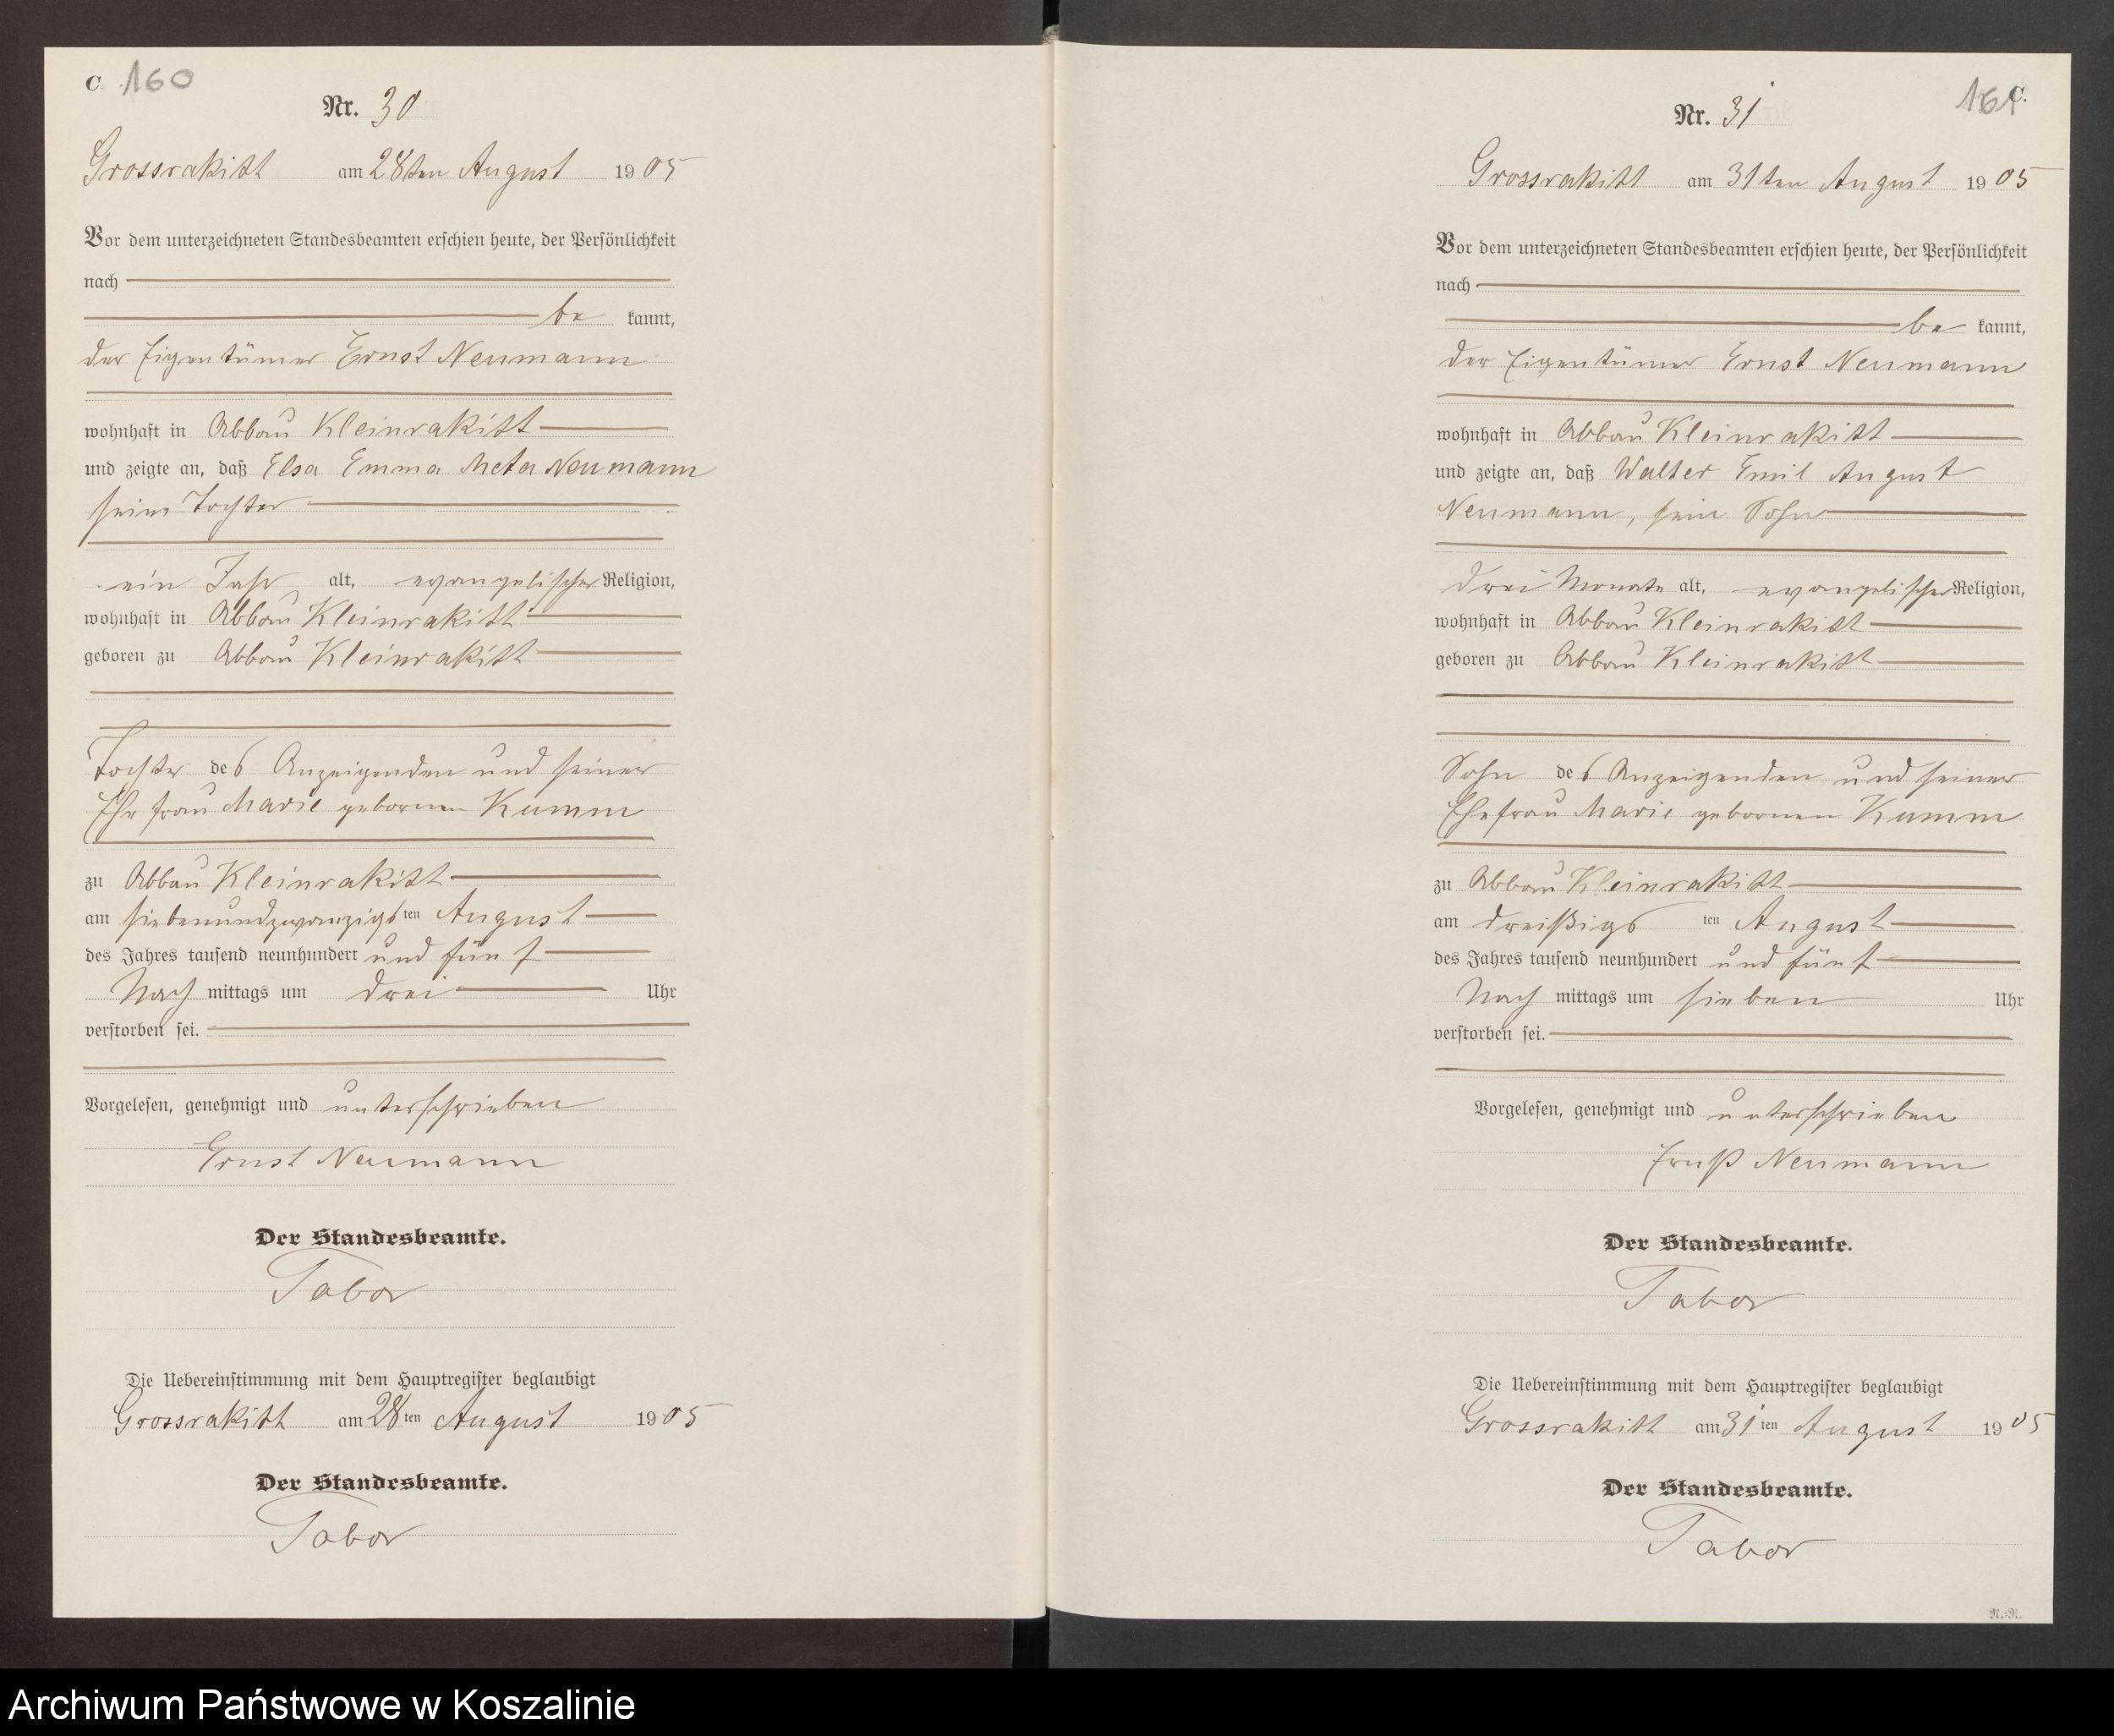 C. 160
Nr. 30
Grossrakitt am 28ten August 1905
Vor dem unterzeichneten Standesbeamten erschien heute, der Persönlichkeit
nach
be kannt,
der Eigentümer Ernst Neumann
wohnhaft in Abbau Kleinrakitt
und zeigte an, daß Elsa Emma Meta Neumann
seine Tochter
ein Jahr alt, evangelischer Religion,
wohnhaft in Abbau Kleinrakitt
geboren zu Abbau Kleinrakitt
Tochter des Anzeigenden und seiner
Ehefrau Marie gebornen Kumm
zu Abbau Kleinrakitt
am siebenundzwanzigsten August
des Jahres tausend neunhundert und fünf
Nach mittags um drei Uhr
verstorben sei.
Vorgelesen, genehmigt und unterschrieben
Ernst Neumann
Der Standesbeamte.
Tabor
Die Uebereinstimmung mit dem Hauptregister beglaubigt
Grossrakitt am 28ten August 1905
Der Standesbeamte.
Tabor
161 C.
Nr. 31
Grossrakitt am 31ten August 1905
Vor dem unterzeichneten Standesbeamten erschien heute, der Persönlichkeit
nach
be kannt,
der Eigentümer Ernst Neumann
wohnhaft in Abbau Kleinrakitt
und zeigte an, daß Walter Emil August
Neumann, sein Sohn
drei Monate alt, evangelischer Religion,
wohnhaft in Abbau Kleinrakitt
geboren zu Abbau Kleinrakitt
Sohn des Anzeigenden und seiner
Ehefrau Marie gebornen Kumm
zu Abbau Kleinrakitt
am dreißigsten August
des Jahres tausend neunhundert und fünf
Nach mittags um sieben Uhr
verstorben sei.
Vorgelesen, genehmigt und unterschrieben
Ernst Neumann
Der Standesbeamte.
Tabor
Die Uebereinstimmung mit dem Hauptregister beglaubigt
Grossrakitt am 31ten August 1905
Der Standesbeamte.
Tabor
N.-N.
Archiwum Państwowe w Koszalinie